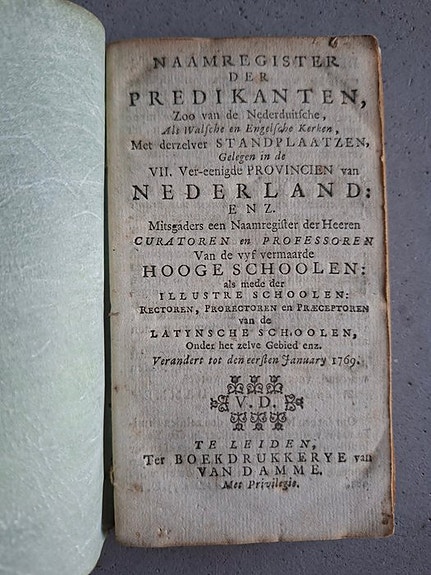 NAAMREGISTER
DER
PREDIKANTEN,
Zoo van de Nederduitsche,
Als Walsche en Engelsche Kerken,
Met derzelver STANDPLAATZEN,
Gelegen in de
VII. Ver-eenigde PROVINCIEN van
NEDERLAND:
ENZ.
Mitsgaders een Naamregister der Heeren
CURATOREN en PROFESSOREN
Van de vyf vermaarde
HOOGE SCHOOLEN:
als mede der
ILLUSTRE SCHOOLEN:
RECTOREN, PRORECTOREN en PRÆCEPTOREN
van de
LATYNSCHE SCHOOLEN,
Onder het zelve Gebied enz.
Verandert tot den eersten January 1769.
V.D.
TE LEIDEN,
Ter BOEKDRUKKERYE van
VAN DAMME.
Met Privilegie.